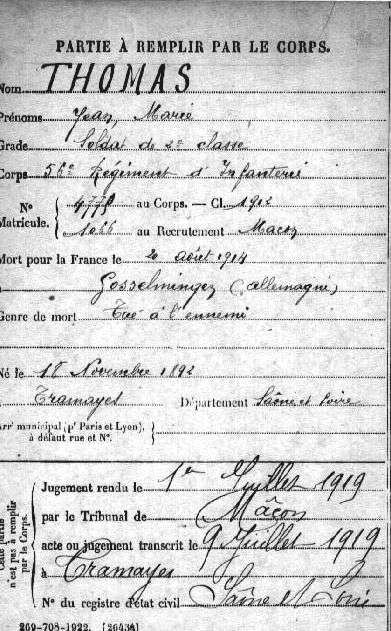 PARTIE À REMPLIR PAR LE CORPS.
Nom THOMAS
Prénoms Jean Marie
Grade Soldat de 2e classe
Corps 56e Régiment d'Infanterie
No au Corps. — Cl. 1912
Matricule. 1066 au Recrutement Macon
Mort pour la France le 20 août 1914
à Gosselminger (allemagne)
Genre de mort Tué à l'ennemi
Né le 18 Novembre 1892
à Tramayes Département Saône et Loire
Arrt municipal (pr Paris et Lyon),
à défaut rue et No.
Cette partie
n'est pas à remplir
par le Corps.
Jugement rendu le 1er Juillet 1919
par le Tribunal de Mâcon
acte ou jugement transcrit le 9 Juillet 1919
à Tramayes
No du registre d'état civil Saône et Loire
269-708-1922. [26434]